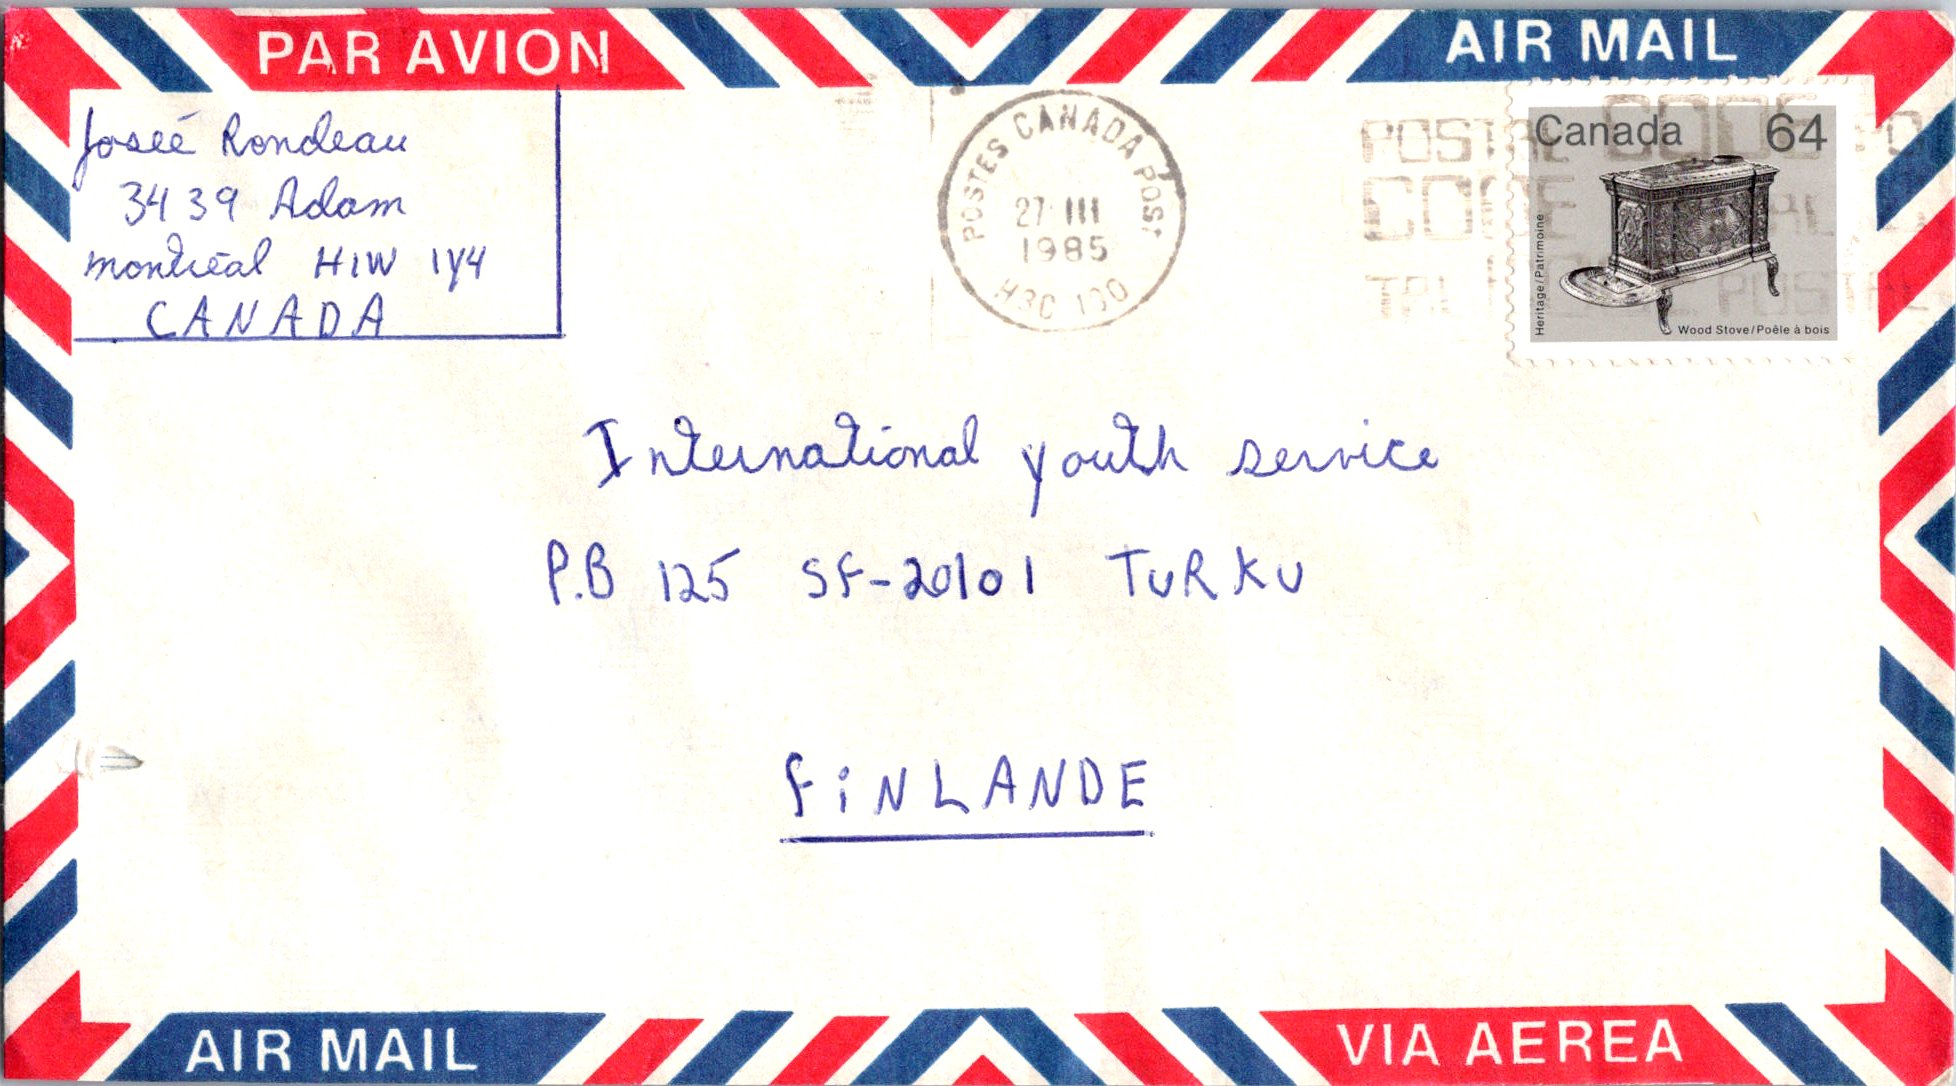 PAR AVION
AIR MAIL
Joseé Rondeau
3439 Adam
Montréal H1W 1Y4
CANADA
POSTES CANADA POST
27 III
1985
H3C 1J0
POSTAL CODE
CODE POSTAL
Canada 64
Heritage/Patrimoine
Wood Stove/Poêle à bois
International youth service
P.B 125 SF-20101 TURKU
FiNLANDE
AIR MAIL
VIA AEREA